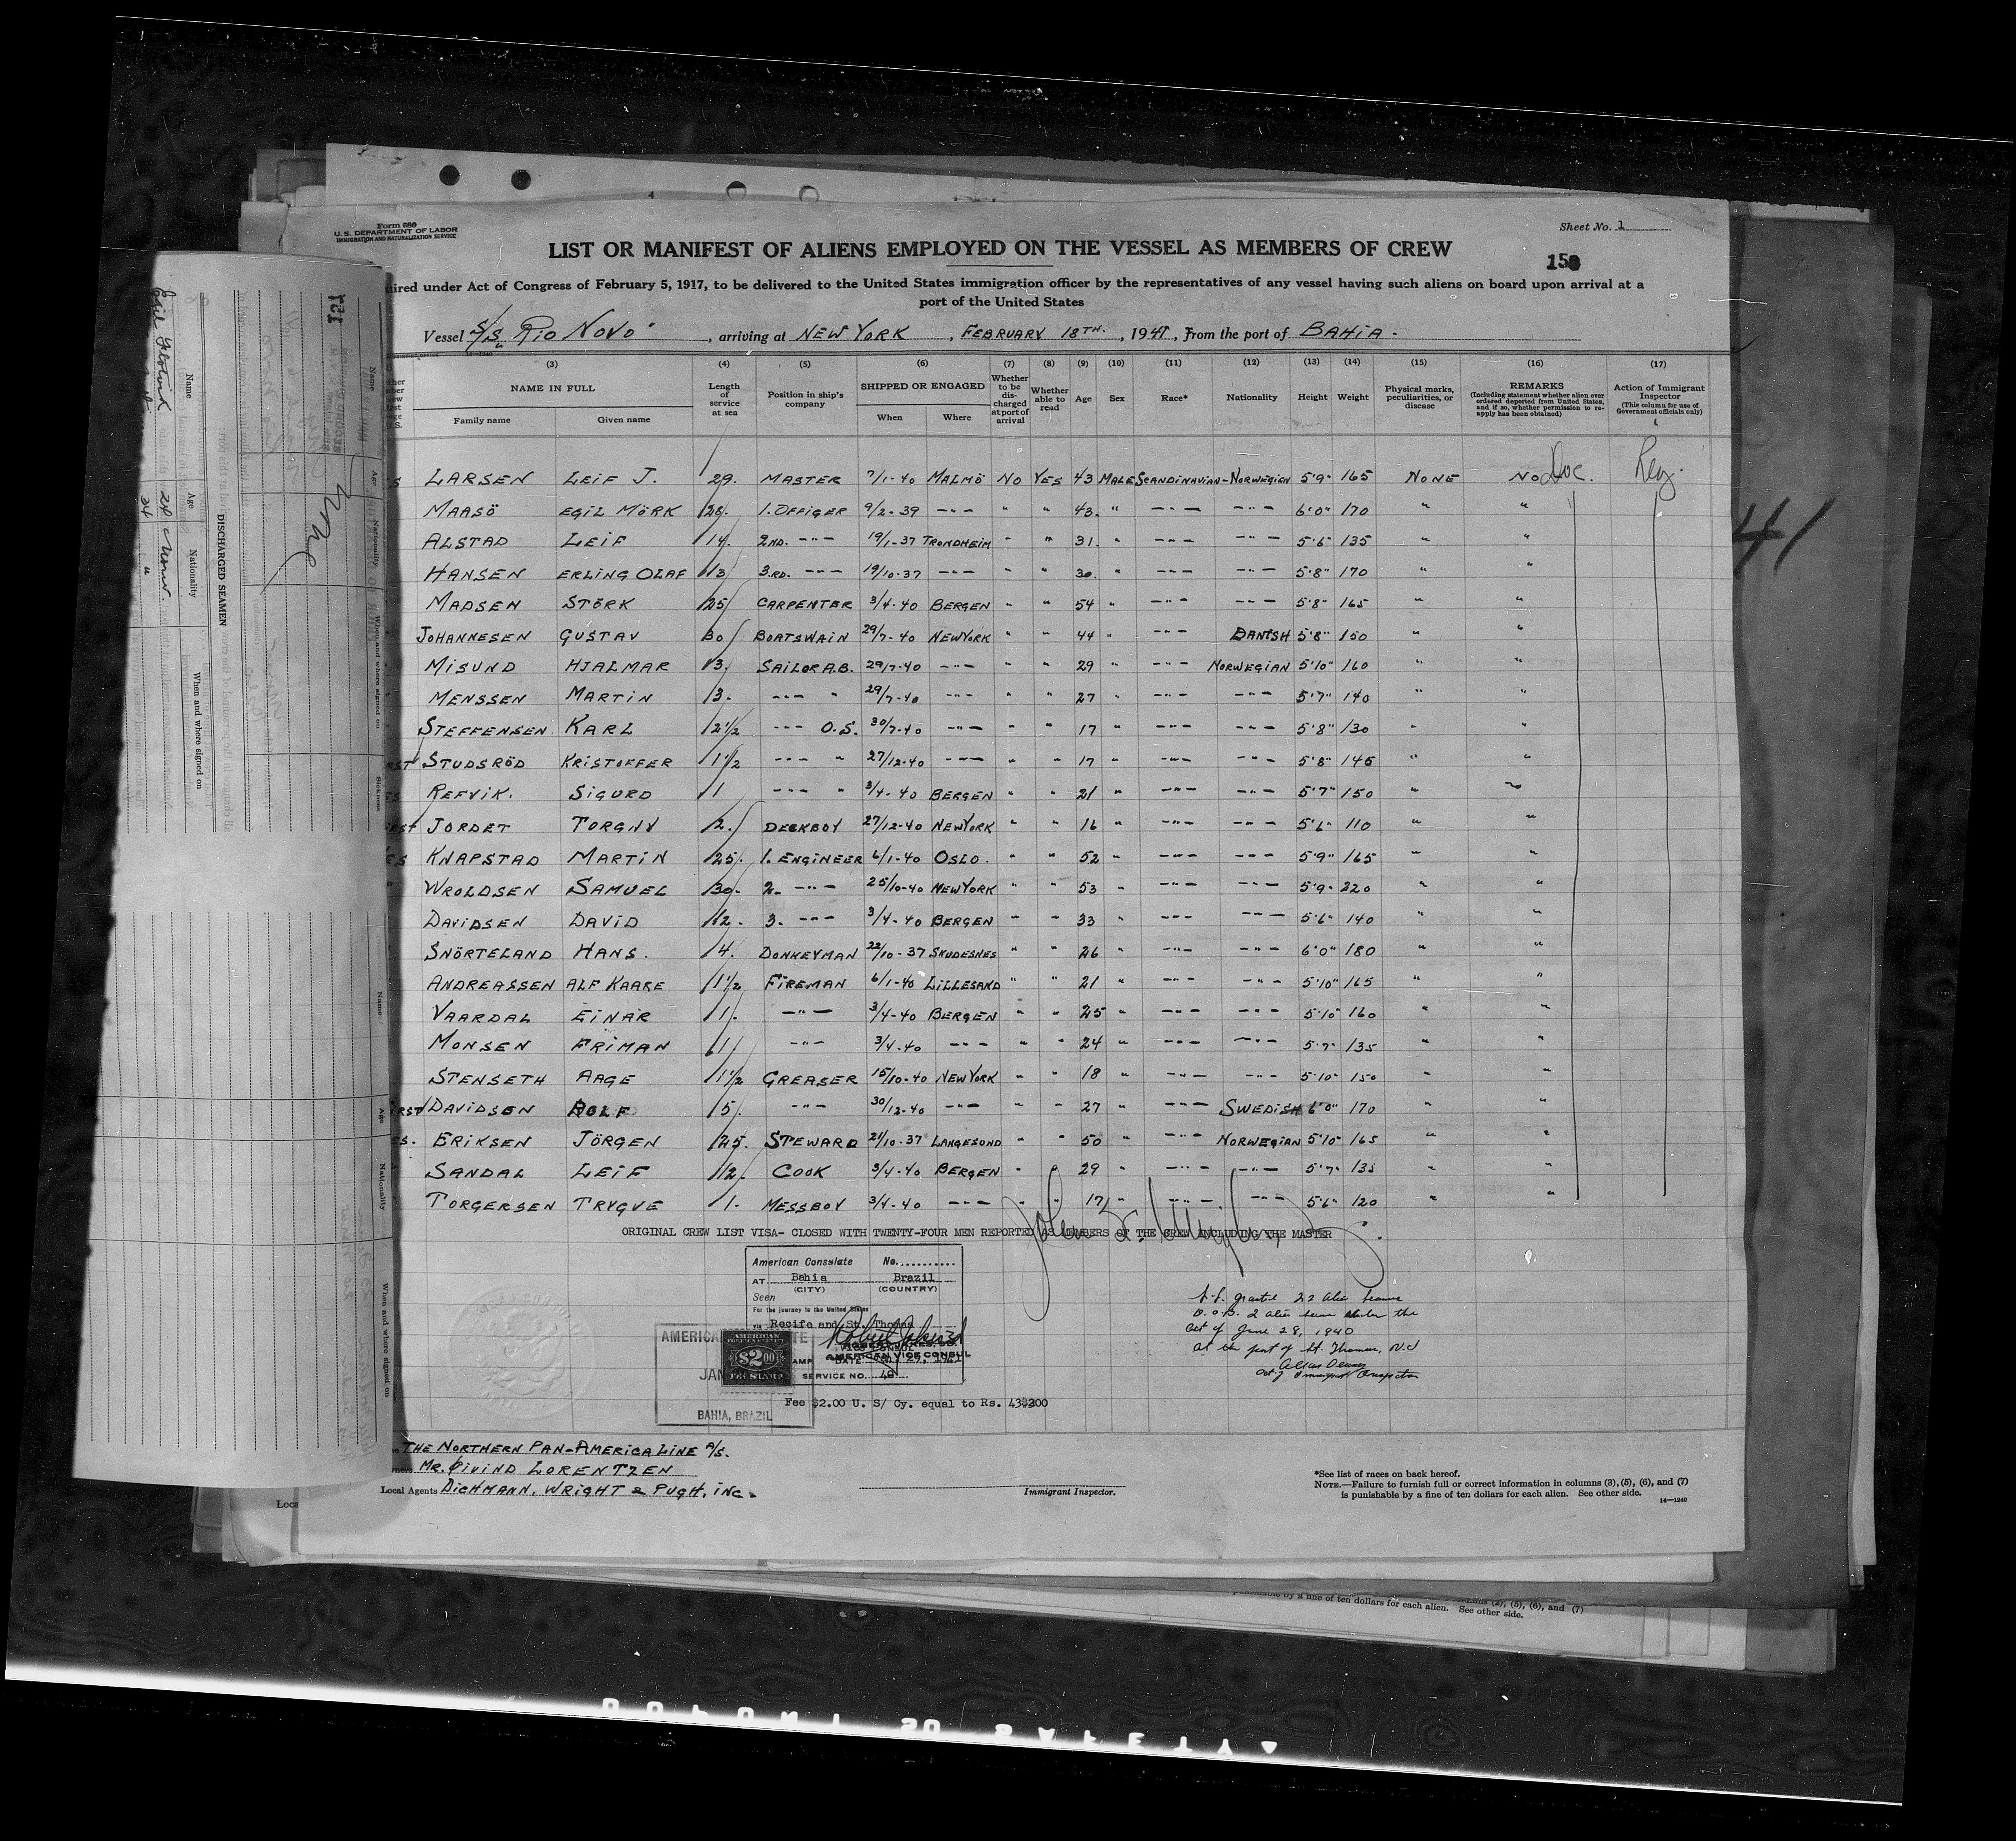 Form 680
U.S. DEPARTMENT OF LABOR
IMMIGRATION AND NATURALIZATION SERVICE
Sheet No. 1
LIST OR MANIFEST OF ALIENS EMPLOYED ON THE VESSEL AS MEMBERS OF CREW
uired under Act of Congress of February 5, 1917, to be delivered to the United States immigration officer by the representatives of any vessel having such aliens on board upon arrival at a
port of the United States
Vessel S/S "RIO NOVO", arriving at NEW YORK, FEBRUARY 18TH., 1941, from the port of BAHIA.
(3) (4) (5) (6) (7) (8) (9) (10) (11) (12) (13) (14) (15) (16) (17)
NAME IN FULL Family name Given name Length of service at sea Position in ship's company SHIPPED OR ENGAGED When Where Whether to be discharged at port of arrival Whether able to read Age Sex Race* Nationality Height Weight Physical marks, peculiarities, or disease REMARKS (Including statement whether alien ever ordered deported from United States, and if so, whether permission to reapply has been obtained) Action of Immigrant Inspector (This column for use of Government officials only)
LARSEN LEIF J. 29. MASTER 7/1-40 MALMÖ NO YES 43 MALE SCANDINAVIAN-NORWEGIAN 5'9" 165 NONE NO
MAASÖ EGIL MÖRK 28. 1. OFFICER 9/2-39 -"- " " 43. " -"- -"- 6'0" 170 " "
ALSTAD LEIF 14. 2ND. -"- 19/1-37 TRONDHEIM " " 31. " -"- -"- 5'6" 135 " "
HANSEN ERLING OLAF 13 3.RD. -"- 19/10-37 -"- " " 30. " -"- -"- 5'8" 170 " "
MADSEN STÖRK 25 CARPENTER 3/4-40 BERGEN " " 54 " -"- -"- 5'8" 165 " "
JOHANNESEN GUSTAV 30 BOATSWAIN 29/7-40 NEWYORK " " 44 " -"- DANISH 5'8" 150 " "
MISUND HJALMAR 13. SAILOR A.B. 29/7-40 -"- " " 29 " -"- NORWEGIAN 5'10" 160 " "
MENSSEN MARTIN 3. -"- " 29/7-40 -"- " " 27 " -"- -"- 5'7" 140 " "
STEFFENSEN KARL 2 1/2 -"- O.S. 30/7-40 -"- " " 17 " -"- -"- 5'8" 130 " "
STUDSRÖD KRISTOFFER 1 1/2 -"- " 27/12-40 -"- " " 17 " -"- -"- 5'8" 145 " "
REFVIK. SIGURD 1 -"- " 3/4-40 BERGEN " " 21 " -"- -"- 5'7" 150 " "
JORDET TORGNY 2. DECKBOY 27/12-40 NEWYORK " " 16 " -"- -"- 5'6" 110 " "
KNAPSTAD MARTIN 25. 1. ENGINEER 6/1-40 OSLO. " " 52 " -"- -"- 5'9" 165 " "
WROLDSEN SAMUEL 30. 2. -"- 25/10-40 NEWYORK " " 53 " -"- -"- 5'9" 220 " "
DAVIDSEN DAVID 12. 3. -"- 3/4-40 BERGEN " " 33 " -"- -"- 5'6" 140 " "
SNÖRTELAND HANS. 4. DONKEYMAN 22/10-37 SKUDESNES " " 26 " -"- -"- 6'0" 180 " "
ANDREASSEN ALF KAARE 1 1/2 FIREMAN 6/1-40 LILLESAND " " 21 " -"- -"- 5'10" 165 " "
VAARDAL EINAR 1. -"- 3/4-40 BERGEN " " 25 " -"- -"- 5'10" 160 " "
MONSEN FRIMAN 1 -"- 3/4-40 -"- " " 24 " -"- -"- 5'7" 135 " "
STENSETH AAGE 1 1/2 GREASER 15/10-40 NEWYORK " " 18 " -"- -"- 5'10" 150 " "
DAVIDSON ROLF 5. -"- 30/12-40 -"- " " 27 " -"- SWEDISH 6'0" 170 " "
ERIKSEN JÖRGEN 25. STEWARD 21/10-37 LANGESUND " " 50 " -"- NORWEGIAN 5'10" 165 " "
SANDAL LEIF 12. COOK 3/4-40 BERGEN " " 29 " -"- -"- 5'7" 135 " "
TORGERSEN TRYGVE 1. MESSBOY 3/4-40 -"- " " 17 " -"- -"- 5'6" 120 " "
ORIGINAL CREW LIST VISA- CLOSED WITH TWENTY-FOUR MEN REPORTED AS MEMBERS OF THE CREW INCLUDING THE MASTER
American Consulate No.
AT Bahia Brazil
(CITY) (COUNTRY)
Seen
For the journey to the United States
Recife and St. Thomas
AMERICAN VICE CONSUL
SERVICE NO. 49
$2.00
FEE STAMP
BAHIA, BRAZIL
Fee $2.00 U. S/ Cy. equal to Rs.
22 alien
act of June 28, 1940
at the port of St. Thomas,
THE NORTHERN PAN-AMERICA LINE A/S.
MR. ØIVIND LORENTZEN
Local Agents DICHMANN, WRIGHT & PUGH, INC.
Immigrant Inspector.
*See list of races on back hereof.
NOTE.—Failure to furnish full or correct information in columns (3), (5), (6), and (7)
is punishable by a fine of ten dollars for each alien. See other side.
14—1240
41
121
DISCHARGED SEAMEN
Name Age Nationality When and where signed on
of ten dollars for each alien. See other side.